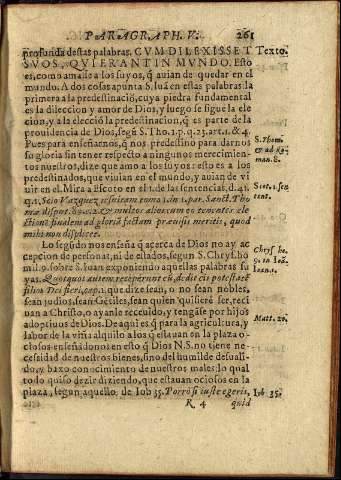 PARAGRAPH. V. 261
profunda destas palabras. CVM DILEXISSET Texto.
SVOS, QVI ERANT IN MVNDO. Esto
es, como amasse a los suyos, q̃ auian de quedar en el
mundo. A dos cosas apunta S. Iuã en estas palabras: la
primera a la predestinació, cuya piedra fundamental
es la dileccion y amor de Dios, y luego se sigue la ele
ció, y a la elecció la predestinacion, q̃ es parte de la
prouidencia de Dios, segũ S. Tho. 1. p. q. 23. art. 1. & 4.
Pues para enseñarnos, q̃ nos predestino para darnos
su gloria sin tener respecto a ningunos merecimien
tos nuestros, dize que amo a los suyos: esto es a los
predestinados, que viuian en el mundo, y auian de vi
uir en el. Mira a Escoto en el 1. de las sentencias, d. 41.
q. 1.
S. Thom.
Scot. 1. sen
tent.
mihi non displicet.
Lo segũdo nos enseña q̃ acerca de Dios no ay ac
cepcion de personas, ni de estados, segun S. Chrys. ho
mil. 9. sobre S. Iuan exponiendo aquellas palabras su
yas. Quotquot autem receperunt eũ, dedit eis potestatẽ
filios Dei fieri
que dize sean, o no sean nobles,
sean judios, sean Gẽtiles, sean quien quisierẽ ser, reci
uan a Christo, o ayanle recceuido, y tengase por hijos
adoptiuos de Dios. De aqui es q̃ para la agricultura, y
labor de la viña alquilo a los q̃ estauan en la plaza o-
ciosos enseñandonos en esto q̃ Dios N. S. no tiene ne
cesidad de nuestros bienes, sino del humilde desuali-
do, y baxo conocimiento de nuestros males: lo qual
todo quiso dezir diziendo, que estauan ociosos en la
plaza, segun aquello de Iob 35. Porrò si iustè egeris,
Chrys. ho.
9. in Ioã.
Ioan. 1.
Matt. 20.
Iob 35.
R 4 quid